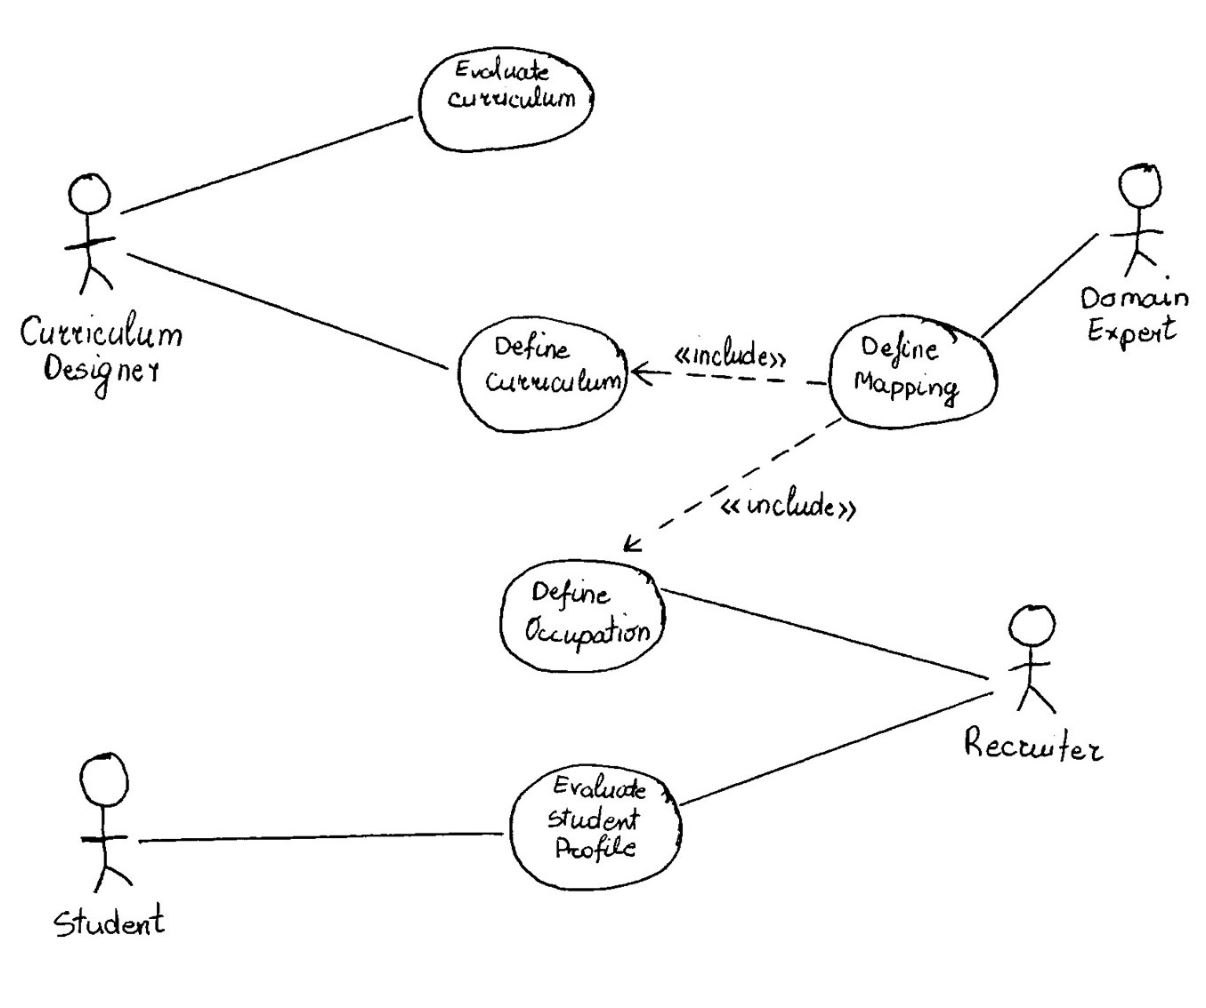 Evaluate
curriculum
Curriculum
Designer
Domain
Expert
Define
curriculum
«include»
Define
Mapping
«include»
Define
Occupation
Recruiter
Evaluate
Student
Profile
Student